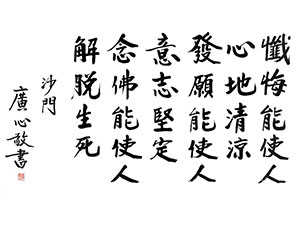 懺悔能使人
心地清涼
發願能使人
意志堅定
念佛能使人
解脱生死
沙門
廣心敬書